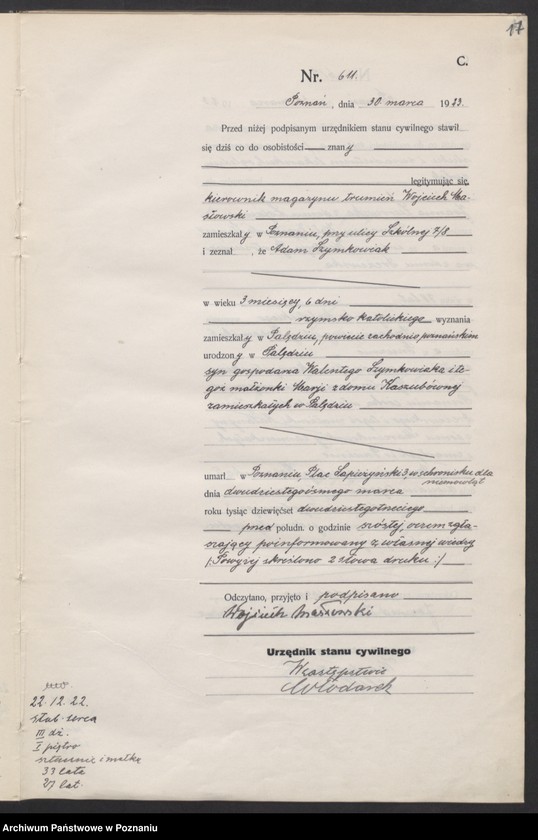 17
C.
Nr. 611.
Poznań, dnia 30. marca 1923.
Przed niżej podpisanym urzędnikiem stanu cywilnego stawił
się dziś co do osobistości znany
legitymując się
kierownik magazynu trumien Wojciech Ma-
słowski
zamieszkały w Poznaniu, przy ulicy Szkólnej 7/8
i zeznał, że Adam Szymkowiak
w wieku 3 miesięcy, 6 dni
rzymsko katolickiego wyznania
zamieszkały w Palędziu, powiecie zachodnio poznańskim
urodzony w Palędziu
syn gospodarza Walentego Szymkowiaka i te-
goż małżonki Marji z domu Kaszubównej
zamieszkałych w Palędziu
umarł w Poznaniu, Plac Sapieżyński 3, w schronisku dla
niemowląt
dnia dwudziestegoósmego marca
roku tysiąc dziewięćset dwudziestegotrzeciego
przed połudn. o godzinie szóstej, oczem zgła-
szający poinformowany z własnej wiedzy
/: Powyżej skreślono 2 słowa druku :/
Odczytano, przyjęto i podpisano
Wojciech Masłowski
Urzędnik stanu cywilnego
W zastępstwie
Włodarek
22.12.22.
słab. serca
III dz.
I piętro
sztucznie i matkę
33 lata
27 lat.
Archiwum Państwowe w Poznaniu